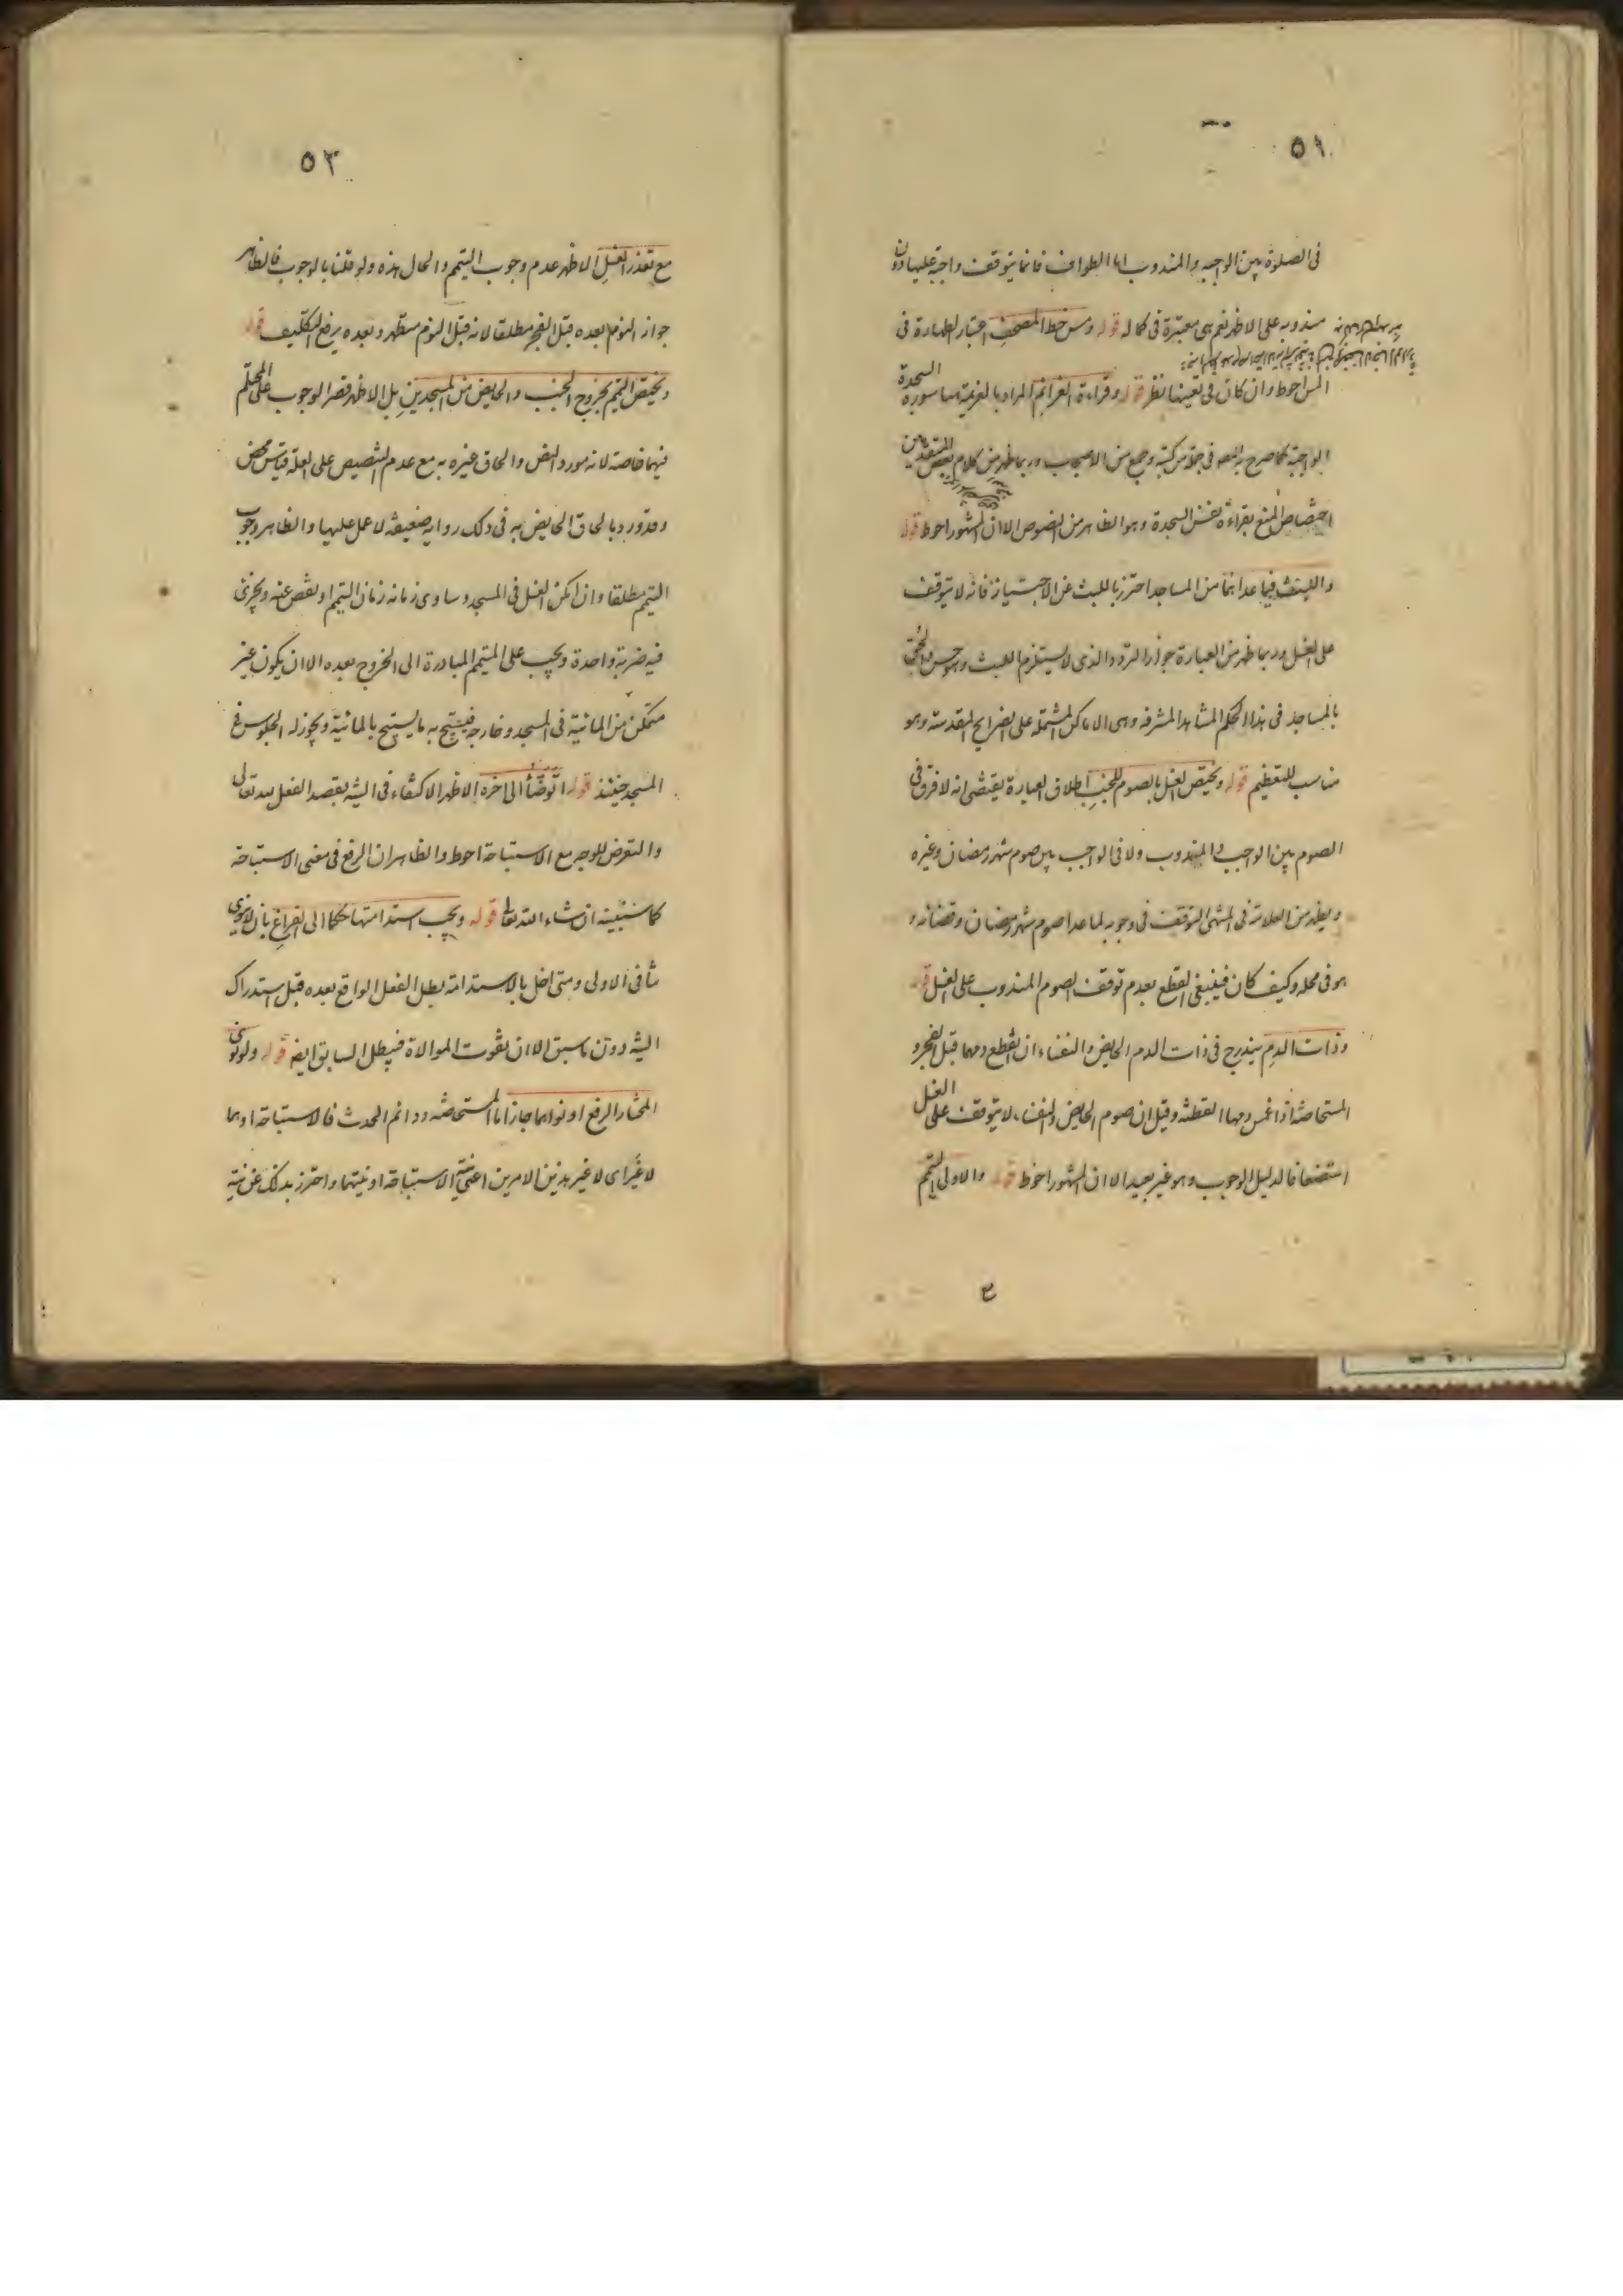 ٥١
فى الصلوة بين الواجبه والمندوب اما الطواف فانما يتوقف واجبه عليها دون
مندوبه على الاظهر نعم هى معتبرة فى كماله قوله ومس خط المصحف اعتبار الطهارة فى
المس احوط وان كان فى تعينها نظر قوله وقراءة العزائم المراد بالعزيمة هنا سورة السجدة
الواجبة كما صرح به المصه فى جملة من كتبه وجمع من الاصحاب وربما ظهر من كلام بعض المتقدمين
اختصاص المنع بقراءة نفس السجدة وهو الظاهر من النصوص الا ان المشهور احوط قوله
واللبث فيما عداهما من المساجد احترز باللبث عن الاجتياز فانه لا يتوقف
على الغسل وربما ظهر من العبارة جواز التردد الذى لا يستلزم اللبث وهو حسن والحق
بالمساجد فى هذا الحكم المشاهد المشرفه وهى الاماكن المشتمله على الضرايح المقدسة وهو
مناسب للتعظيم قوله ويختص الغسل بالصوم للجنب اطلاق العبارة يقتضى انه لا فرق فى
الصوم بين الواجب والمندوب ولا فى الواجب بين صوم شهر رمضان وغيره
ويظهر من العلامة فى المنتهى التوقف فى وجوبه لما عدا صوم شهر رمضان وقضائه و
هو فى محله وكيف كان فينبغى القطع بعدم توقف الصوم المندوب على الغسل قوله
وذات الدم يندرج فى ذات الدم الحايض والنفساء ان انقطع دمها قبل الفجر و
المستحاضة اذا غمس دمها القطنة وقيل ان صوم الحايض والنفساء لا يتوقف على الغسل
استضعافا لدليل الوجوب وهو غير بعيد الا ان المشهور احوط قوله والاولى التيمم
٤
٥٢
مع تعذر الغسل الاظهر عدم وجوب التيمم والحال هذه ولو قلنا بالوجوب فالظاهر
جواز النوم بعده قبل الفجر مطلقا لانه قبل النوم متطهر وبعده يرفع التكليف قوله
ويختص التيمم بخروج الجنب والحايض من المسجدين بل الاظهر قصر الوجوب على المحتلم
فيهما خاصة لانه مورد النص والحاق غيره به مع عدم التنصيص على العلة قياس محض
وقد ورد بالحاق الحايض به فى ذلك رواية ضعيفة لا عمل عليها والظاهر وجوب
التيمم مطلقا وان امكن الغسل فى المسجد وساوى زمانه زمان التيمم او نقص عنه ويجزئ
فيه ضربة واحدة ويجب على المتيمم المبادرة الى الخروج بعده الا ان يكون غير
متمكن من المائية فى المسجد وخارجه فيستبيح به ما يستبيح بالمائية ويجوز له الجلوس فى
المسجد حينئذ قوله اتوضأ الى اخره الاظهر الاكتفاء فى النية بقصد الفعل لله تعالى
والتعرض للوجه مع الاستباحة احوط والظاهر ان الرفع فى معنى الاستباحة
كما سنبينه ان شاء الله تعالى قوله ويجب استدامتها حكما الى الفراغ بان لا ينوى
منافى الاولى ومتى اخل بالاستدامة بطل الفعل الواقع بعده قبل استدراك
النية دون ما سبق الا ان يفوت الموالاة فيبطل السابق ايضا قوله ولو نوى
المختار الرفع او نواهما جاز اما المستحاضة ودائم الحدث فالاستباحة او هما
لا غير اى لا غير هذين الامرين اعنى نية الاستباحة او نيتهما واحترز بذلك عن نية